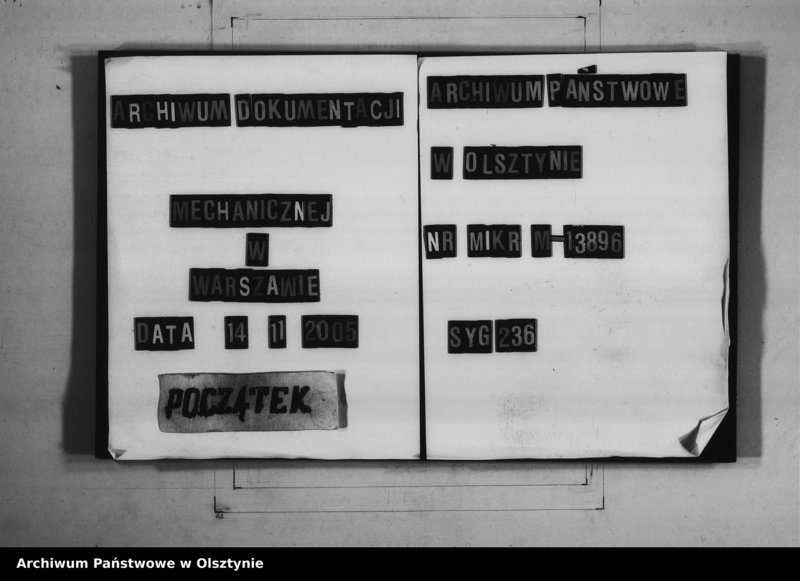 ARCHIWUM DOKUMENTACJI
MECHANICZNEJ
W
WARSZAWIE
DATA 14 11 2005
POCZĄTEK
ARCHIWUM PAŃSTWOWE
W OLSZTYNIE
NR MIKR M-13896
SYG 236
Archiwum Państwowe w Olsztynie